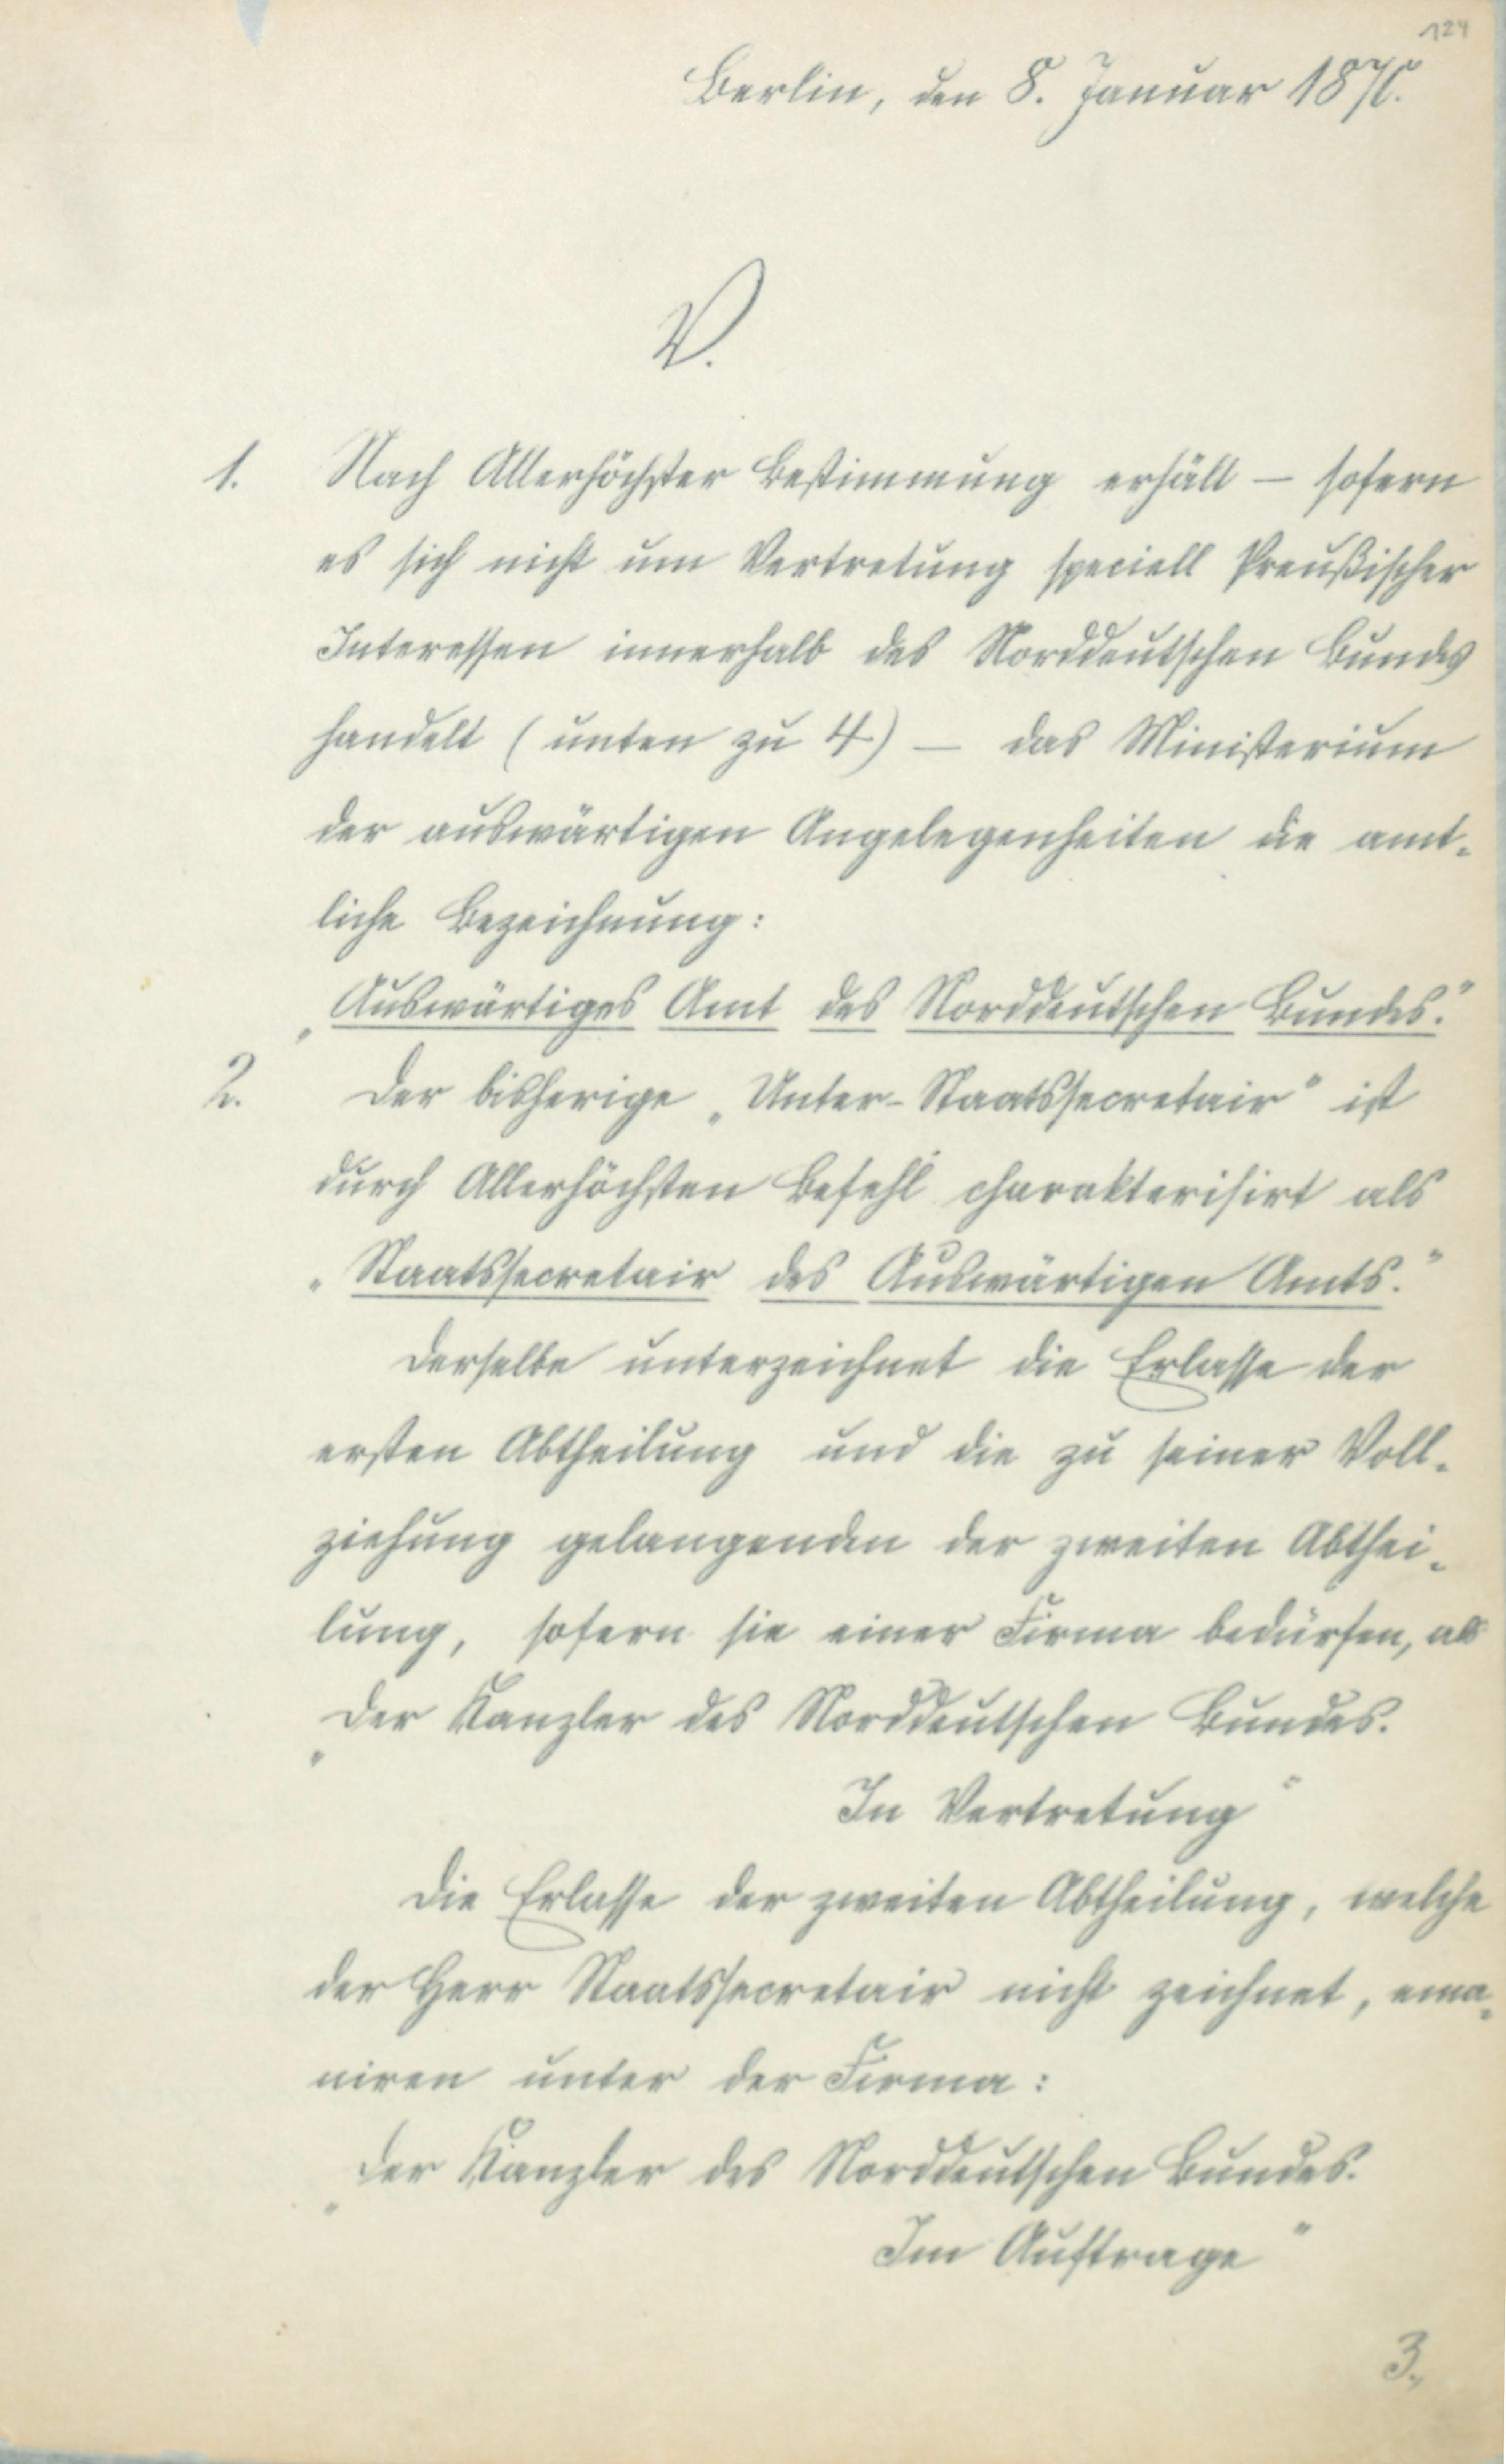 124
Berlin, den 8. Januar 1870.
V.
1. Nach Allerhöchster Bestimmung erhält — sofern
es sich nicht um Vertretung speciell Preußischer
Interessen innerhalb des Norddeutschen Bundes
handelt (unten zu 4) — das Ministerium
der auswärtigen Angelegenheiten die amt-
liche Bezeichnung:
„Auswärtiges Amt des Norddeutschen Bundes."
2. Der bisherige „Unter-Staatssecretair" ist
durch Allerhöchsten Befehl charakterisirt als
„Staatssecretair des Auswärtigen Amts."
Derselbe unterzeichnet die Erlasse der
ersten Abtheilung und die zu seiner Voll-
ziehung gelangenden der zweiten Abthei-
lung, sofern sie einer Firma bedürfen, als
„Der Kanzler des Norddeutschen Bundes.
In Vertretung"
Die Erlasse der zweiten Abtheilung, welche
der Herr Staatssecretair nicht zeichnet, ema-
niren unter der Firma:
„Der Kanzler des Norddeutschen Bundes.
Im Auftrage"
3.,